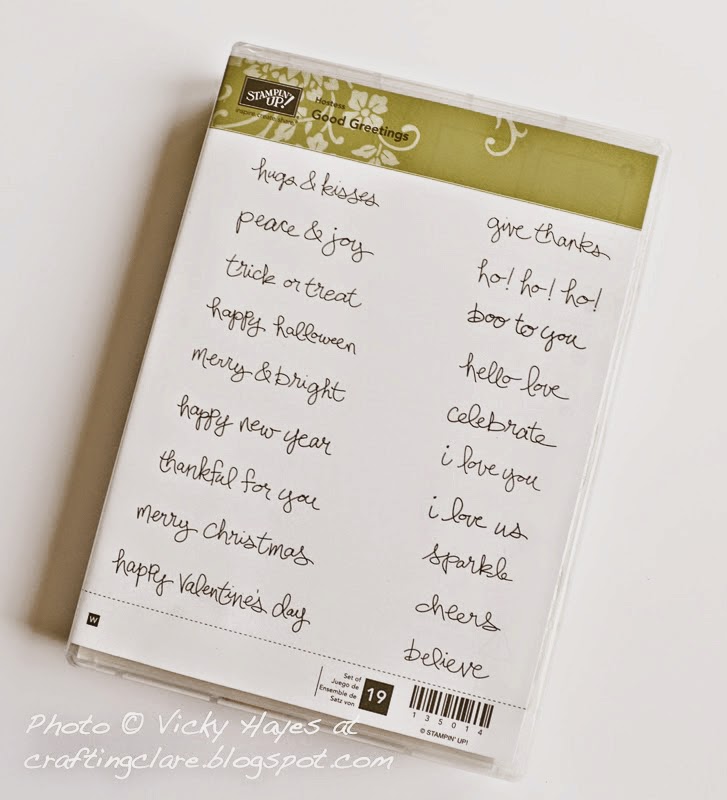 STAMPIN' UP!
inspire.create.share.
Hostess
Good Greetings
hugs & kisses
peace & joy
trick or treat
happy halloween
merry & bright
happy new year
thankful for you
merry christmas
happy valentine's day
give thanks
ho! ho! ho!
boo to you
hello love
celebrate
i love you
i love us
sparkle
cheers
believe
W
Set of
Juego de
Ensemble de
Satz von
19
135014
© STAMPIN' UP!
Photo © Vicky Hayes at
craftingclare.blogspot.com